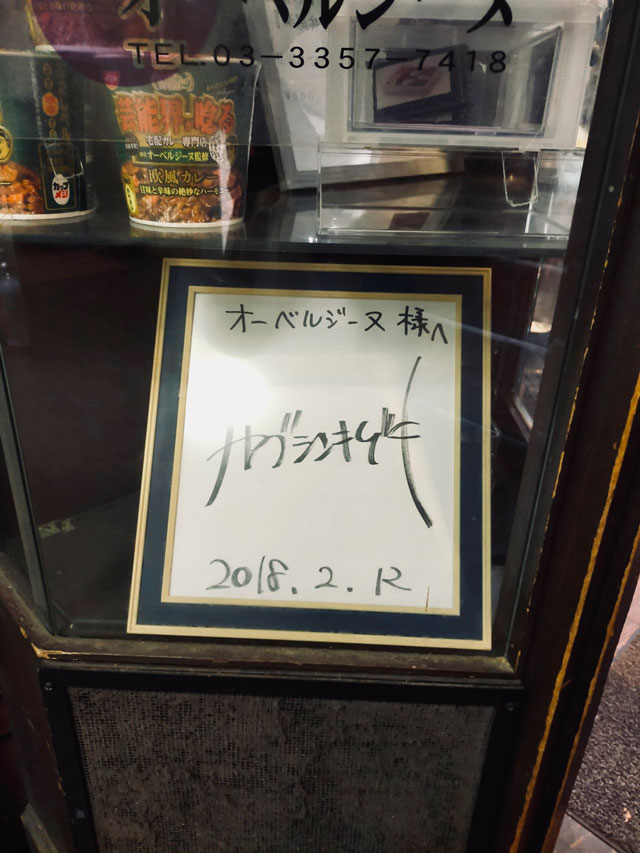 オーベルジーヌ
TEL.03-3357-7418
芸能界も唸る
宅配カレー専門店
オーベルジーヌ監修
欧風カレー
甘味と辛味の絶妙なハーモニー
カップメシ
オーベルジーヌ 様へ
2018.2.12